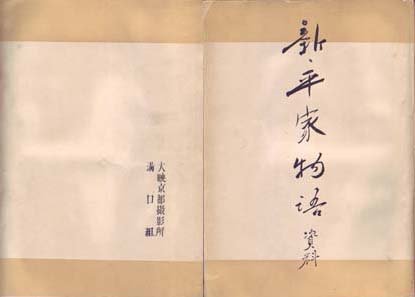 新・平家物語
資料
大映京都撮影所
溝口組